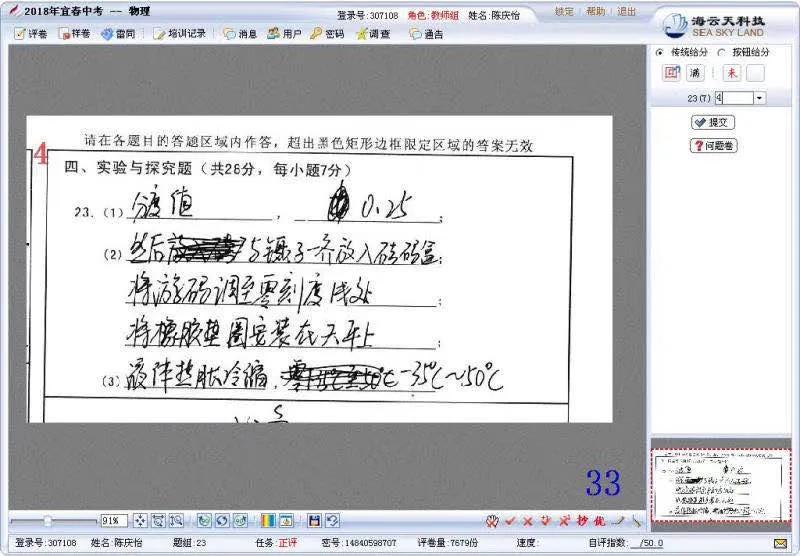 2018年宜春中考 -- 物理
登录号:307108 角色:教师组 姓名:陈庆怡
锁定 | 帮助 | 退出
评卷 样卷 雷同 培训记录 消息 用户 密码 调查 通告
海云天科技
SEA SKY LAND
传统给分 按钮给分
回 满 未
23(7) 4
提交
问题卷
请在各题目的答题区域内作答，超出黑色矩形边框限定区域的答案无效
4
四、实验与探究题（共28分，每小题7分）
23.（1）分度值， 0.25；
（2）然后 与镊子一齐放入砝码盒；
将游码调至零刻度线处；
将橡胶垫圈安装在天平上；
（3）液体热胀冷缩， -35℃~50℃
33
91%
抄 优
登录号:307108 姓名:陈庆怡 题组:23 任务:正评 密号:14840598707 评卷量:7679份 速度: 自评指数:__/50.0